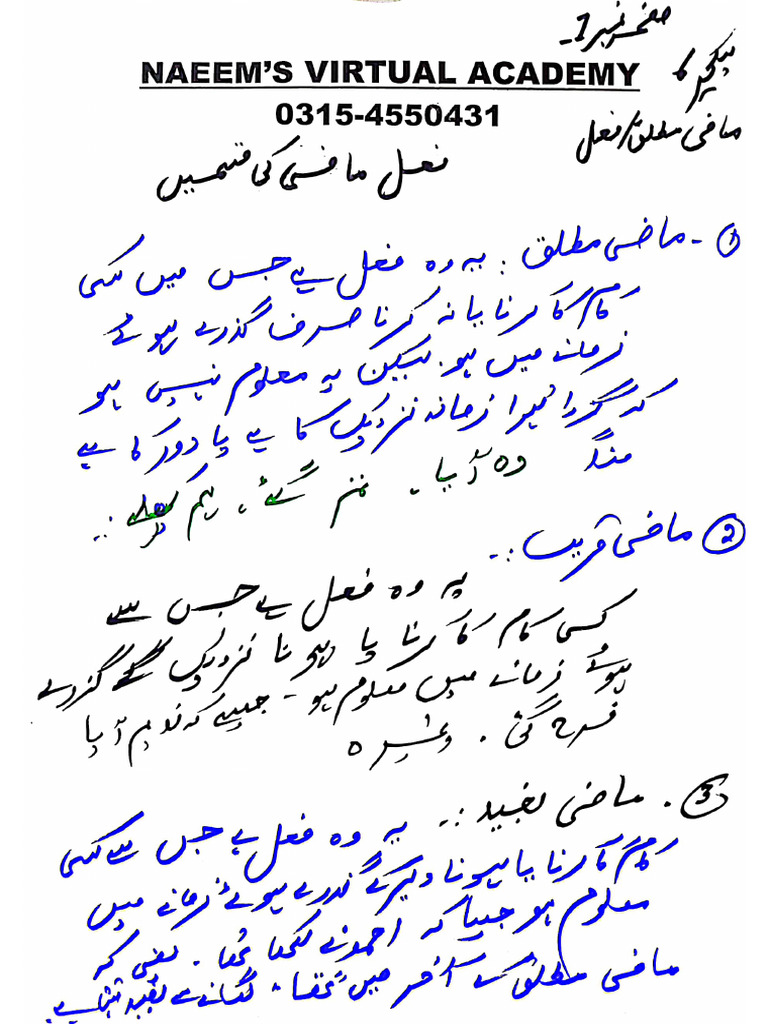 صفحہ نمبر 1-
NAEEM'S VIRTUAL ACADEMY
0315-4550431
لیکچر کا
ماضی مطلق/فعل
فعل ماضی کی قسمیں
① - ماضی مطلق : یہ وہ فعل ہے جس میں کسی
کام کا کرنا یا نہ کرنا صرف گذرے ہوئے
زمانے میں ہو۔ لیکن یہ معلوم نہیں ہو
کہ گزرا ہوا زمانہ نزدیک کا ہے یا دور کا ہے
مثلاً وہ آیا۔ گئے، ہم
② ماضی قریب :-
یہ وہ فعل ہے جس سے
کسی کام کا کرنا یا ہونا نزدیک کے گزرے
ہوئے زمانے میں معلوم ہو - جیسے کہ ندیم آیا
فرح گئی۔ وغیرہ
③ . ماضی بعید :- یہ وہ فعل ہے جس سے کسی
کام کا کرنا یا ہونا دیر کے گذرے ہوئے زمانے میں
معلوم ہو جیسا کہ احمد نے لکھا تھا۔ یعنی کہ
ماضی مطلق کے آخر میں "تھا" لگانے سے بعید بنتا ہے۔